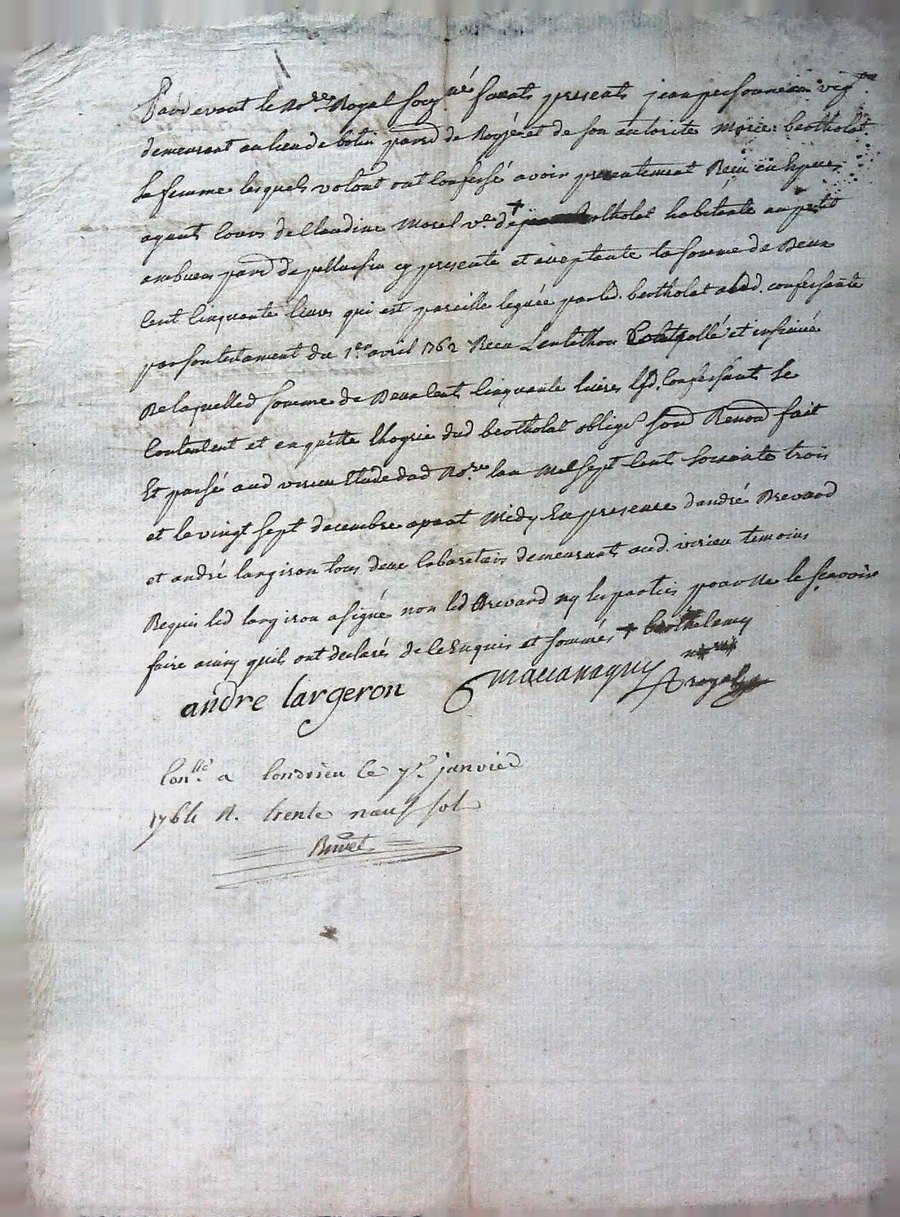 Pardevant le No.re Royal soug.né furent presents jean personneau vig.n
demeurant au lieu de botin parr.e de et de son autorite Marie bertholat
Sa femme lesquels volont.t ont Confessé avoir presentement Receu en Espece
ayant Cours de Claudine Morel v.e d' + bertholat habitante au petit
ambuen parr.e de pellussin cy presente et acceptante la somme de Deux
Cent Cinquante livres qui est pareille leguée par led. bertholat alad. confessante
par son testament du 1.er avril 1762 Receu Controllé et insinué
De laquelled somme de Deux Cents Cinquante livres lesd. Confessants Se
Contentent et en quitte lhoyrie dud bertholat oblig.s soum.s Renon.s fait
Et passé aud virieu Etude dud No.re lan Mil Sept Cent Soixante trois
et le vingt sept decembre apres Midy En presence dandré Brevard
et andré largiron tous deux Cabaretiers demeurants aud. virieu temoins
Requis led largiron a signé non led Brevard ny les parties pour ne le sçavoir
faire ainsy quils ont declarés de ce Enquis et sommés + barthelemy
andre largeron
royal
Con.lle a Condrieu le 7.e janvier
1764 R. trente neuf sols